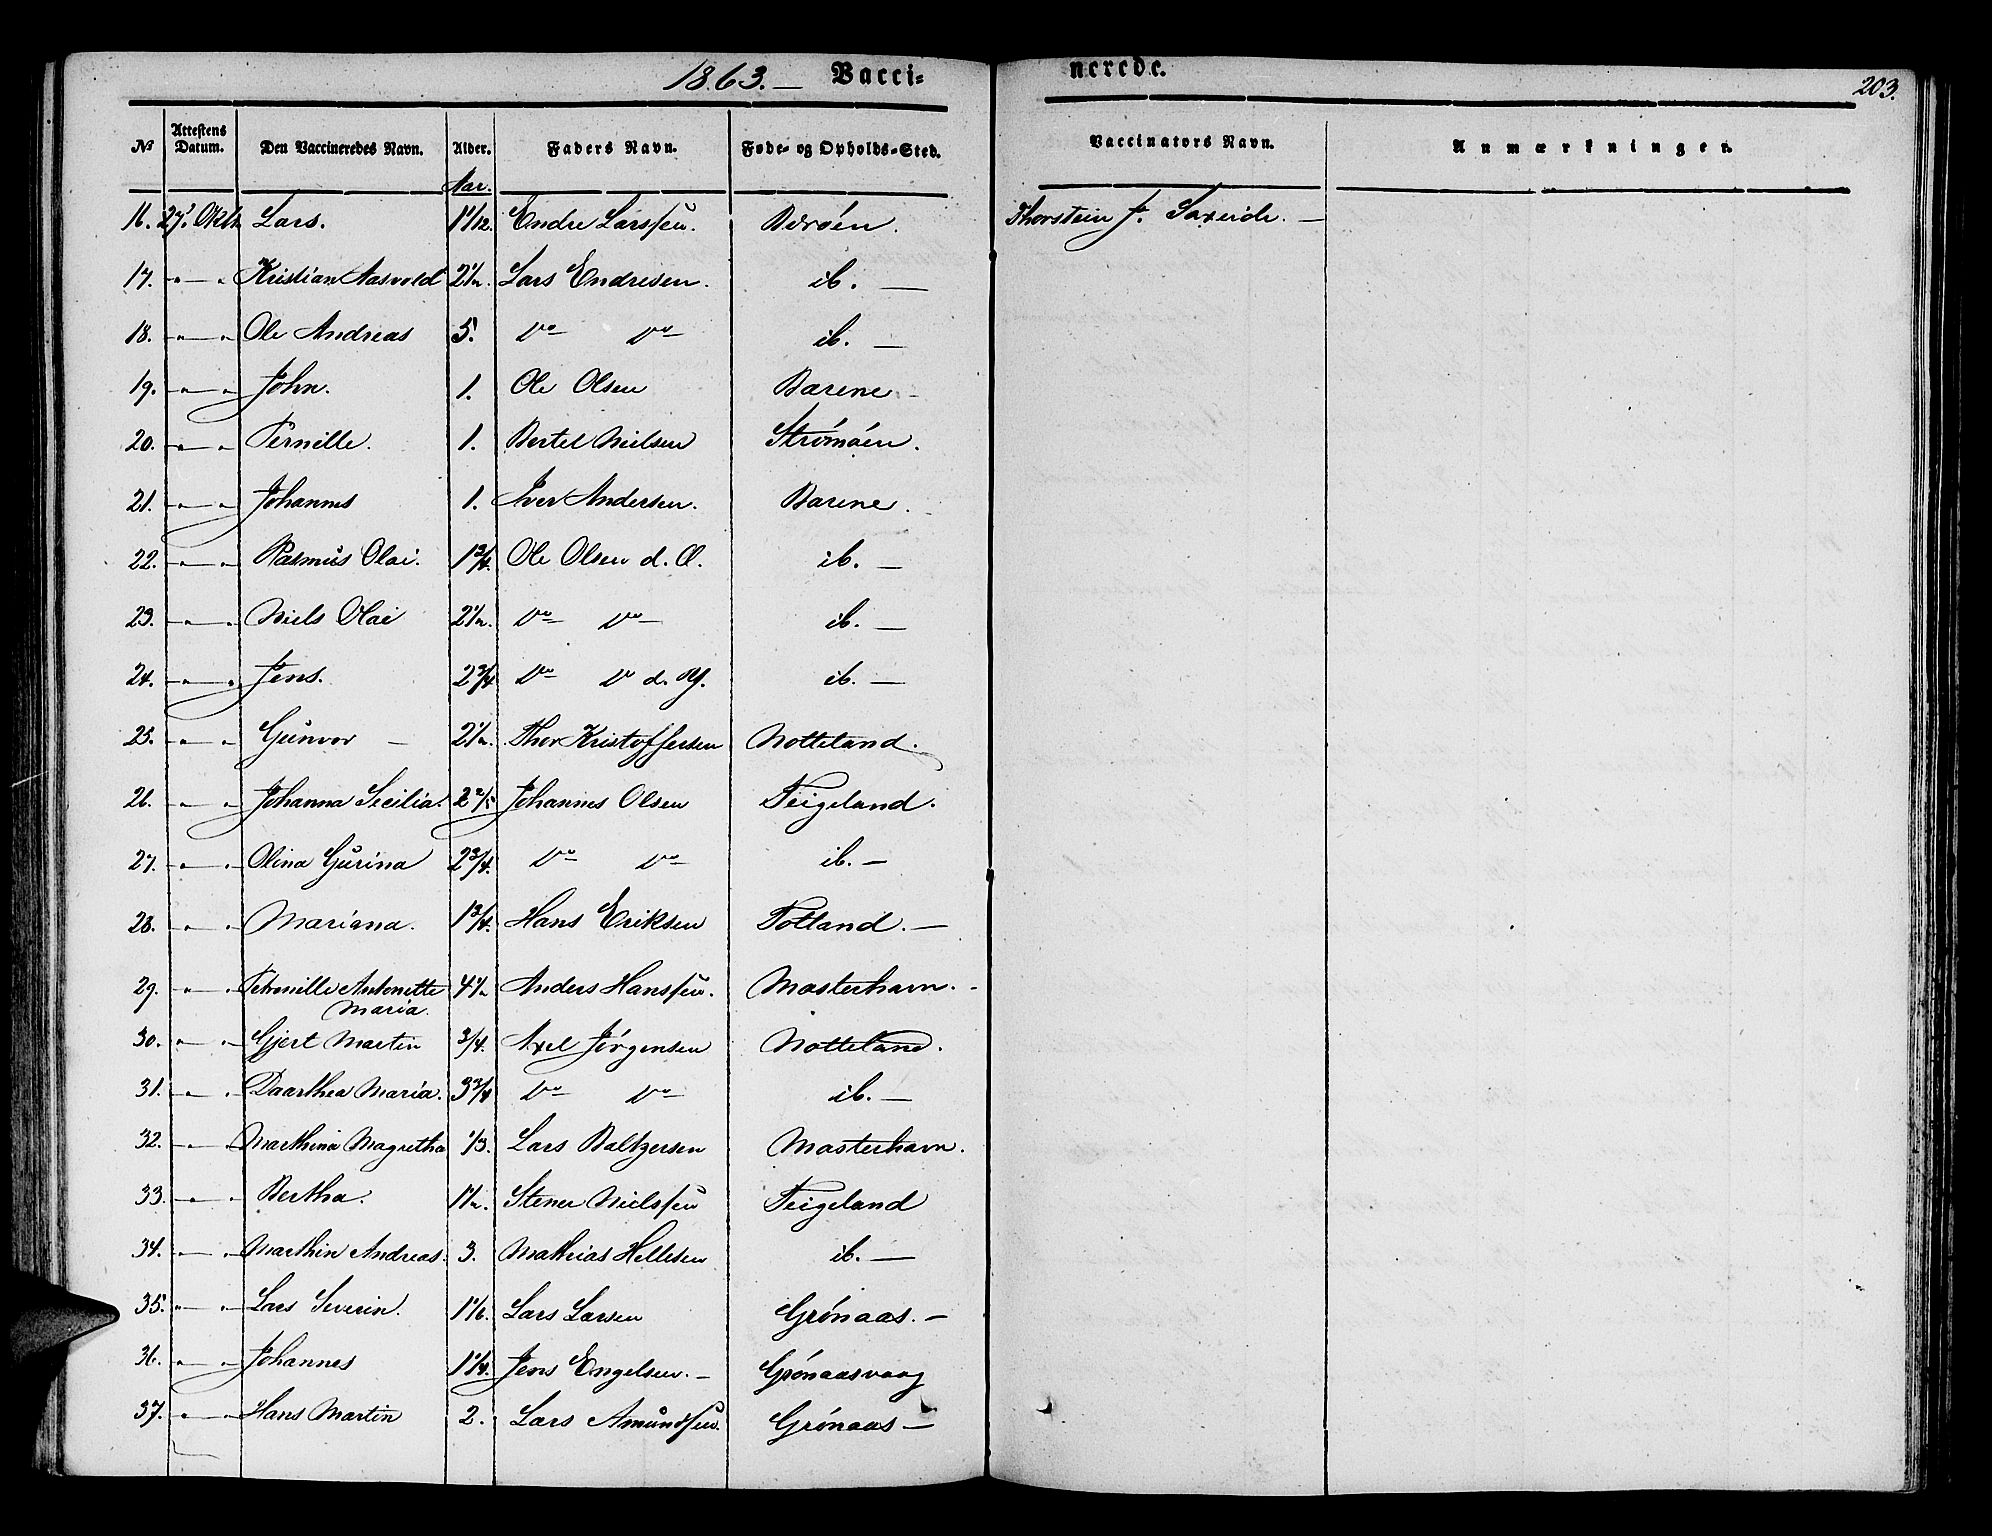 1863. — Vacci=
nerede.
203.
No Attestens Datum. Den Vaccineredes Navn. Alder. Faders Navn. Føde- og Opholds-Sted. Vaccinators Navn. Anmærkninger.
Aar.
16. 27. Oktb. Lars. 1 1/12. Endre Larssen. Børøen. Thorstein J. Saxeide. —
17. " — " Kristian Aasvold 2 1/2. Lars Endresen. ib. —
18. " — " Ole Andreas 5. Do Do ib. —
19. " — " John. 1. Ole Olsen Barene
20. " — " Pernille. 1. Bertel Nielsen Strømøen.
21. " — " Johannes 1. Iver Andersen. Barene.
22. " — " Rasmus Olai. 1 3/4. Ole Olsen d. Æ. ib. —
23. " — " Niels Olai 2 1/2. Do Do ib. —
24. " — " Jens. 2 3/4 Do Do d. Y. ib. —
25. " — " Gunvor — 2 1/2. Thor Kristoffersen Notteland.
26. " — " Johanna Secilia. 2 2/5 Johannes Olsen Teigeland.
27. " — " Olina Gurina 2 3/4. Do Do ib. —
28. " — " Mariana. 1 3/4. Hans Eriksen Totland. —
29. " — " Petronille Antonette 4 1/2 Anders Hanssen. Mosterhavn. -
Maria.
30. " — " Gjert Martin 3/4. Axel Jørgensen Notteland.
31. " — " Daarthea Maria. 3 3/4 Do Do ib. —
32. " — " Marthina Magretha 1/3. Lars Baltzersen Mosterhavn.
33. " — " Bertha. 1 1/2. Stener Nielssen Teigeland
34. " — " Marthin Andreas. 3. Mathias Hellesen ib. —
35. " — " Lars Severin. 1 1/6. Lars Larsen Grønaas. —
36. " — " Johannes 1 1/4. Jens Engelsen. — Grønaasvaag
37. " — " Hans Martin 2. Lars Amundsen. Grønaas —